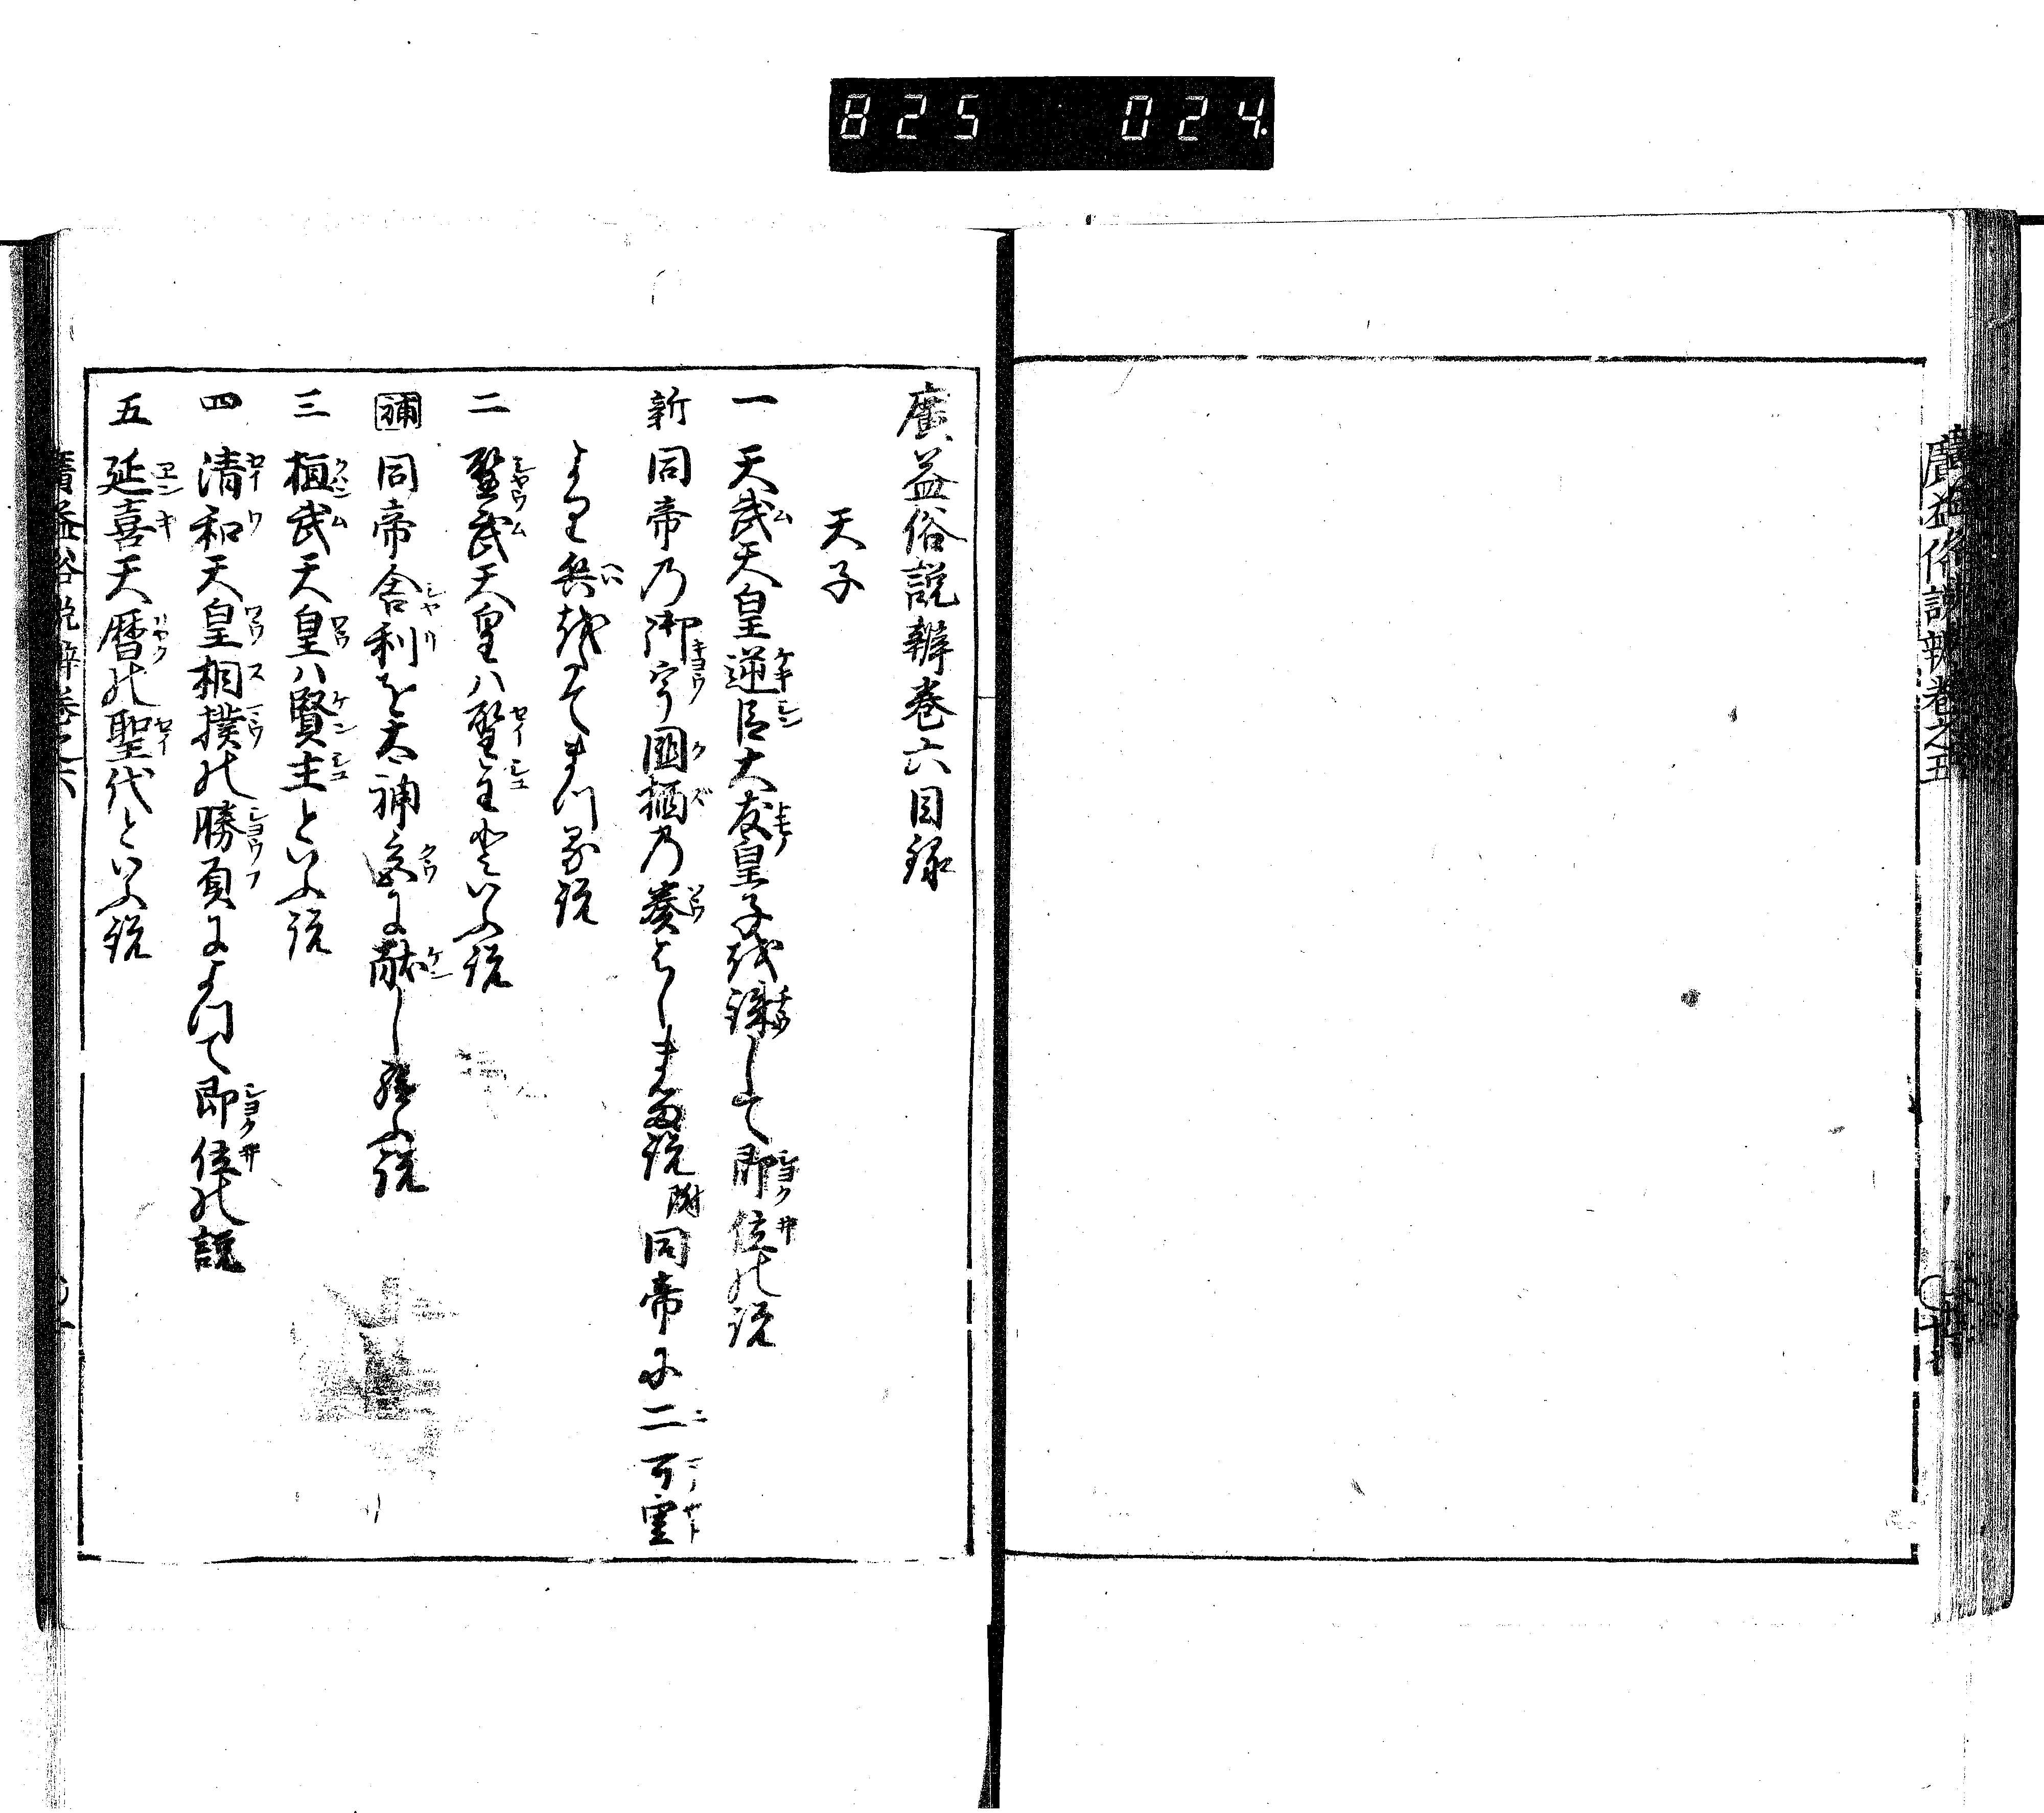 825 024
廣益俗説辨卷之五
廣益俗説辨卷六目録
天子
一 天武天皇逆臣大友皇子越誅して即位の説
新 同帝乃御宇國栖乃奏はしまる説 附同帝に二可室
より兵越そまつる説
二 聖武天皇ハ聖主といふ説
補 同帝舎利を太神宮に献し給ふ説
三 桓武天皇ハ賢主といふ説
四 清和天皇相撲の勝負によつて即位の説
五 延喜天暦の聖代といふ説
廣益俗説辨卷之六